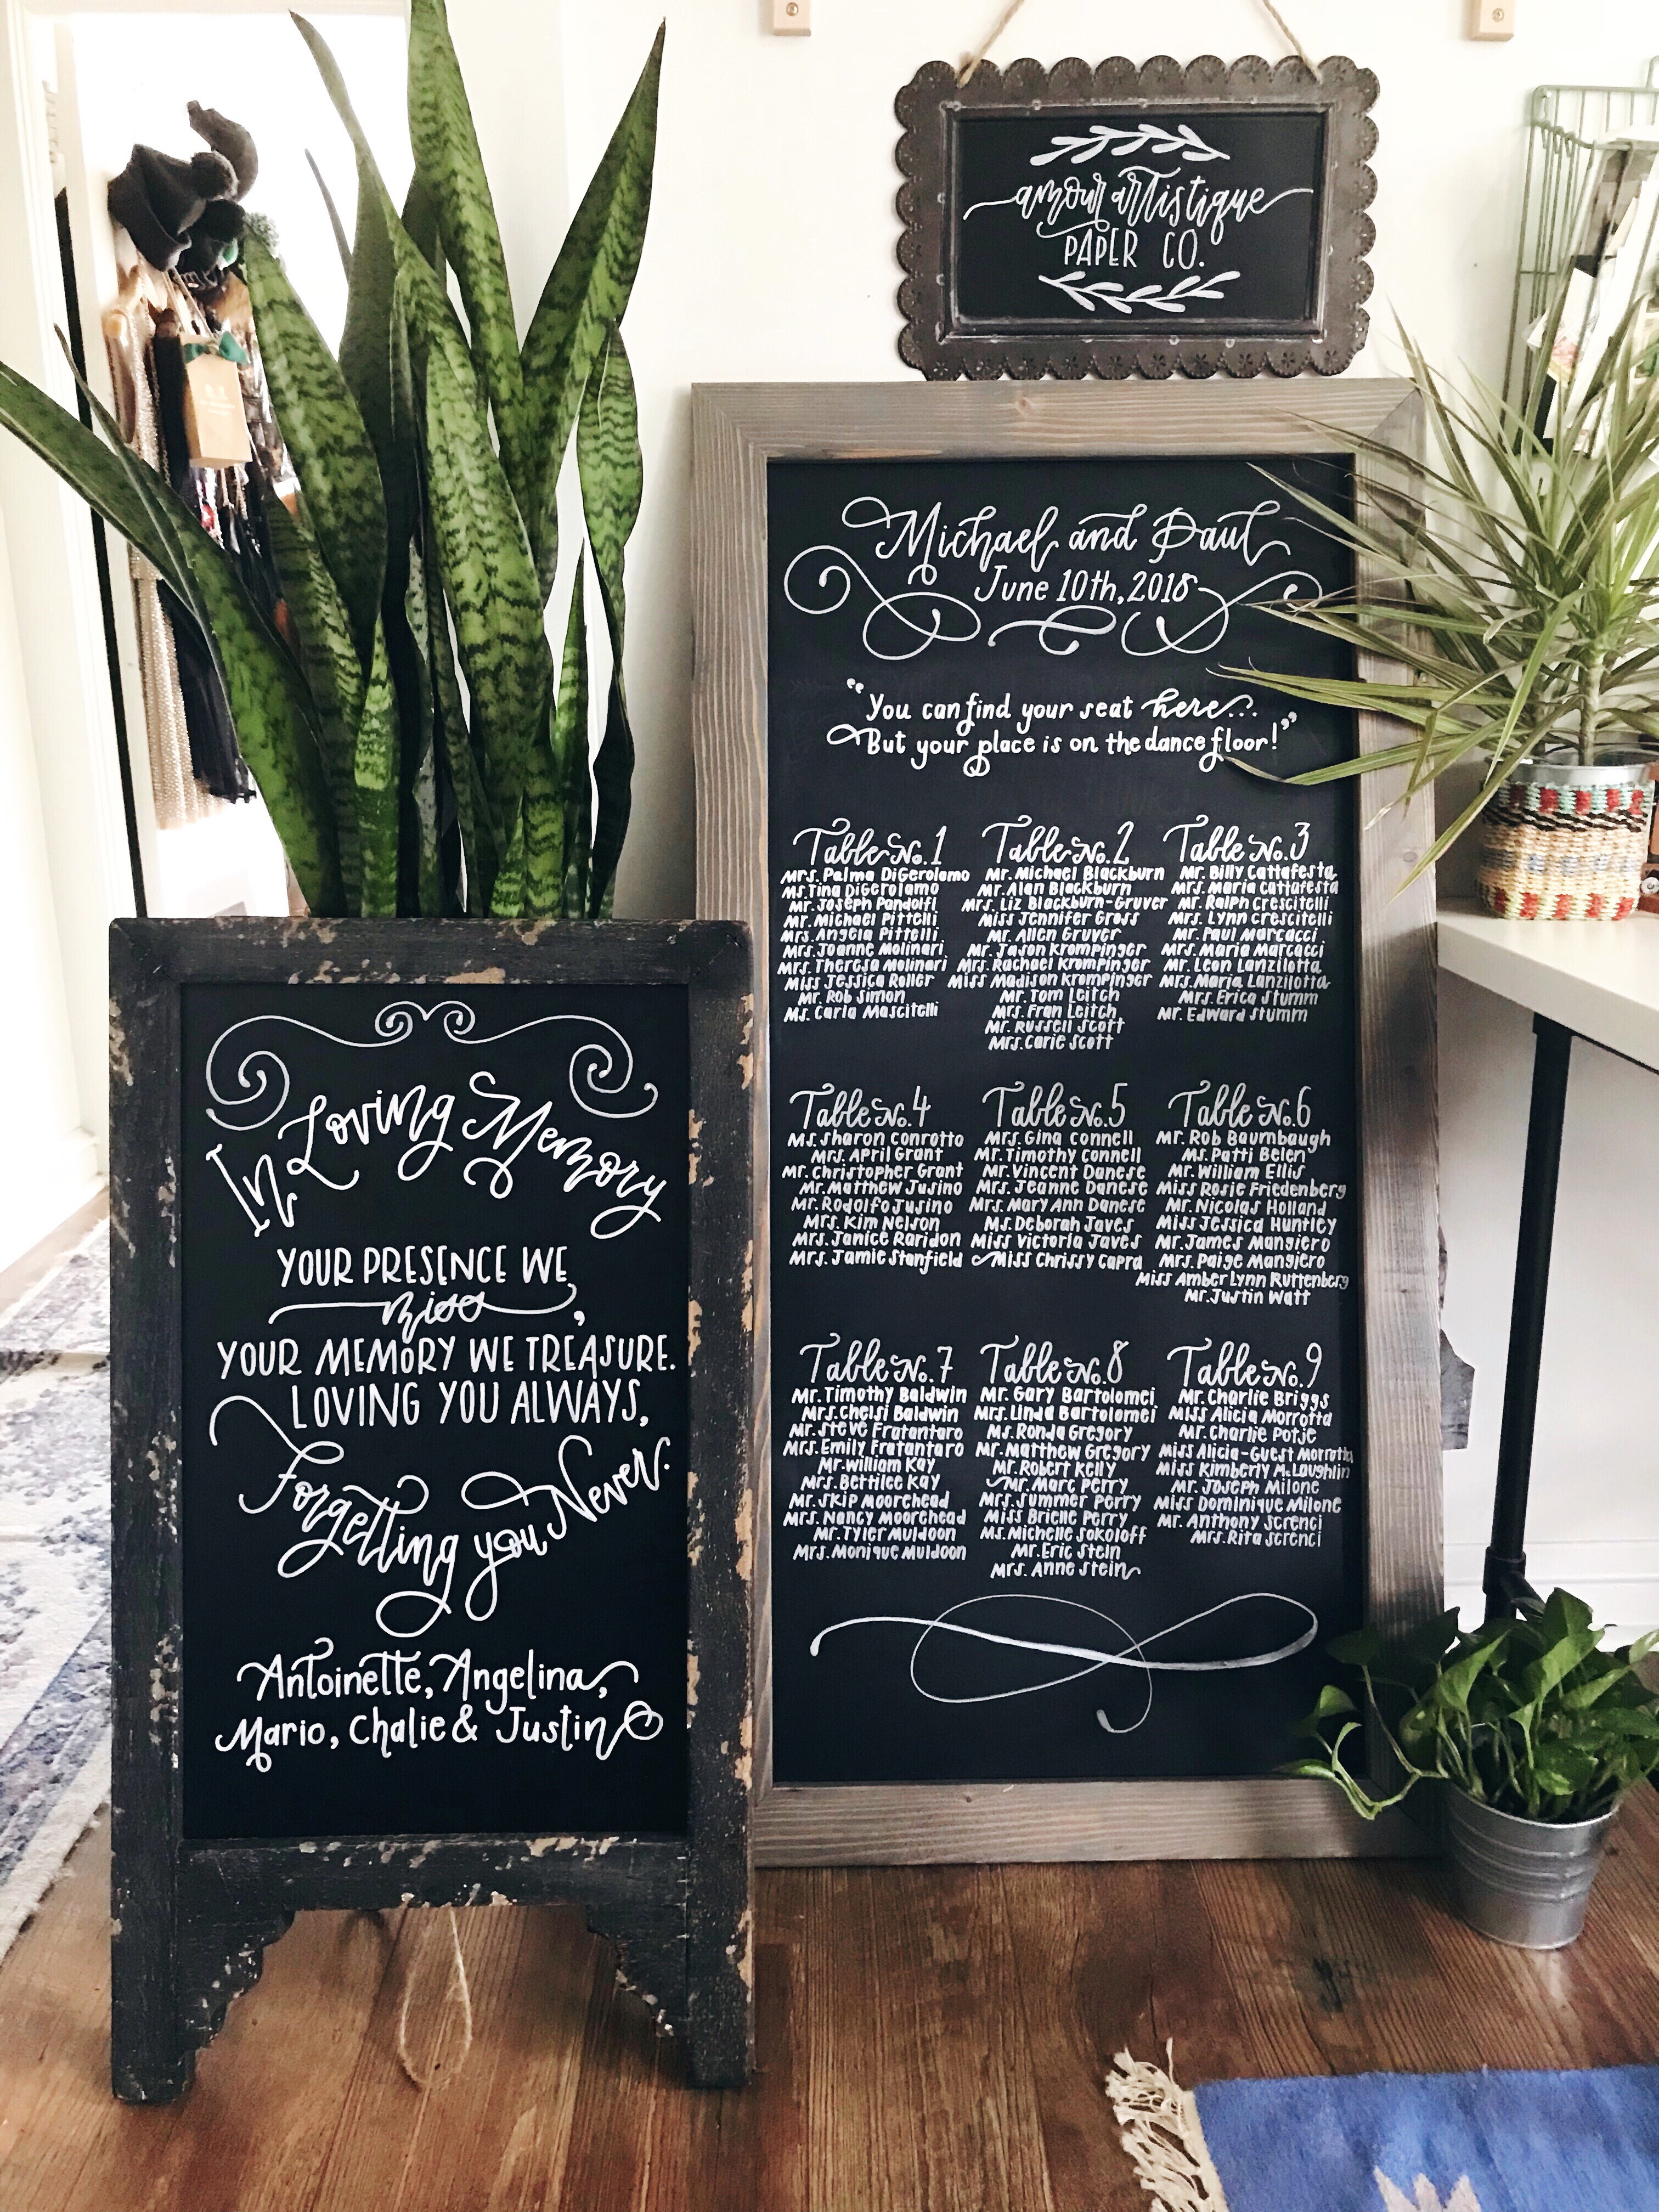 amour artistique
PAPER CO.
Michael and Paul
June 10th, 2018
"You can find your seat here...
But your place is on the dance floor!"
Table No. 1
Mrs. Palma DiGerolamo
Ms. Tina DiGerolamo
Mr. Joseph Pandolfi
Mr. Michael Pittelli
Mrs. Angela Pittelli
Mrs. Joanne Molinari
Mrs. Theresa Molinari
Miss Jessica Roller
Mr. Rob Simon
Ms. Carla Mascitelli
Table No. 2
Mr. Michael Blackburn
Mr. Alan Blackburn
Mrs. Liz Blackburn-Gruver
Miss Jennifer Gross
Mr. Allen Gruver
Mr. Jason Krompinger
Mrs. Rachael Krompinger
Miss Madison Krompinger
Mr. Tom Leitch
Mrs. Fran Leitch
Mr. Russell Scott
Mrs. Carie Scott
Table No. 3
Mr. Billy Cattafesta
Mrs. Maria Cattafesta
Mr. Ralph Crescitelli
Mrs. Lynn Crescitelli
Mr. Paul Marcacci
Mrs. Maria Marcacci
Mr. Leon Lanzilotta
Mrs. Maria Lanzilotta
Mrs. Erica Stumm
Mr. Edward Stumm
Table No. 4
Ms. Sharon Conrotto
Mrs. April Grant
Mr. Christopher Grant
Mr. Matthew Jusino
Mr. Rodolfo Jusino
Mrs. Kim Nelson
Mrs. Janice Raridon
Mrs. Jamie Stanfield
Table No. 5
Mrs. Gina Connell
Mr. Timothy Connell
Mr. Vincent Danese
Mrs. Jeanne Danese
Mrs. Mary Ann Danese
Ms. Deborah Javes
Miss Victoria Javes
Miss Chrissy Capra
Table No. 6
Mr. Rob Baumbaugh
Ms. Patti Belen
Mr. William Ellis
Miss Rosie Friedenberg
Mr. Nicolas Holland
Miss Jessica Huntley
Mr. James Mangiero
Mrs. Paige Mangiero
Miss Amber Lynn Ruttenberg
Mr. Justin Watt
Table No. 7
Mr. Timothy Baldwin
Mrs. Chelsi Baldwin
Mr. Steve Fratantaro
Mrs. Emily Fratantaro
Mr. William Kay
Mrs. Bettilee Kay
Mr. Skip Moorehead
Mrs. Nancy Moorehead
Mr. Tyler Muldoon
Mrs. Monique Muldoon
Table No. 8
Mr. Gary Bartolomei
Mrs. Linda Bartolomei
Ms. Ronda Gregory
Mr. Matthew Gregory
Mr. Robert Kelly
Mr. Marc Perry
Mrs. Summer Perry
Miss Brielle Perry
Ms. Michelle Sokoloff
Mr. Eric Stein
Mrs. Anne Stein
Table No. 9
Mr. Charlie Briggs
Miss Alicia Morrotta
Mr. Charlie Potje
Miss Alicia-Guest Morrotta
Miss Kimberly McLaughlin
Mr. Joseph Milone
Miss Dominique Milone
Mr. Anthony Screnci
Mrs. Rita Screnci
In Loving Memory
YOUR PRESENCE WE
miss,
YOUR MEMORY WE TREASURE.
LOVING YOU ALWAYS,
Forgetting you Never.
Antoinette, Angelina,
Mario, Chalie & Justin